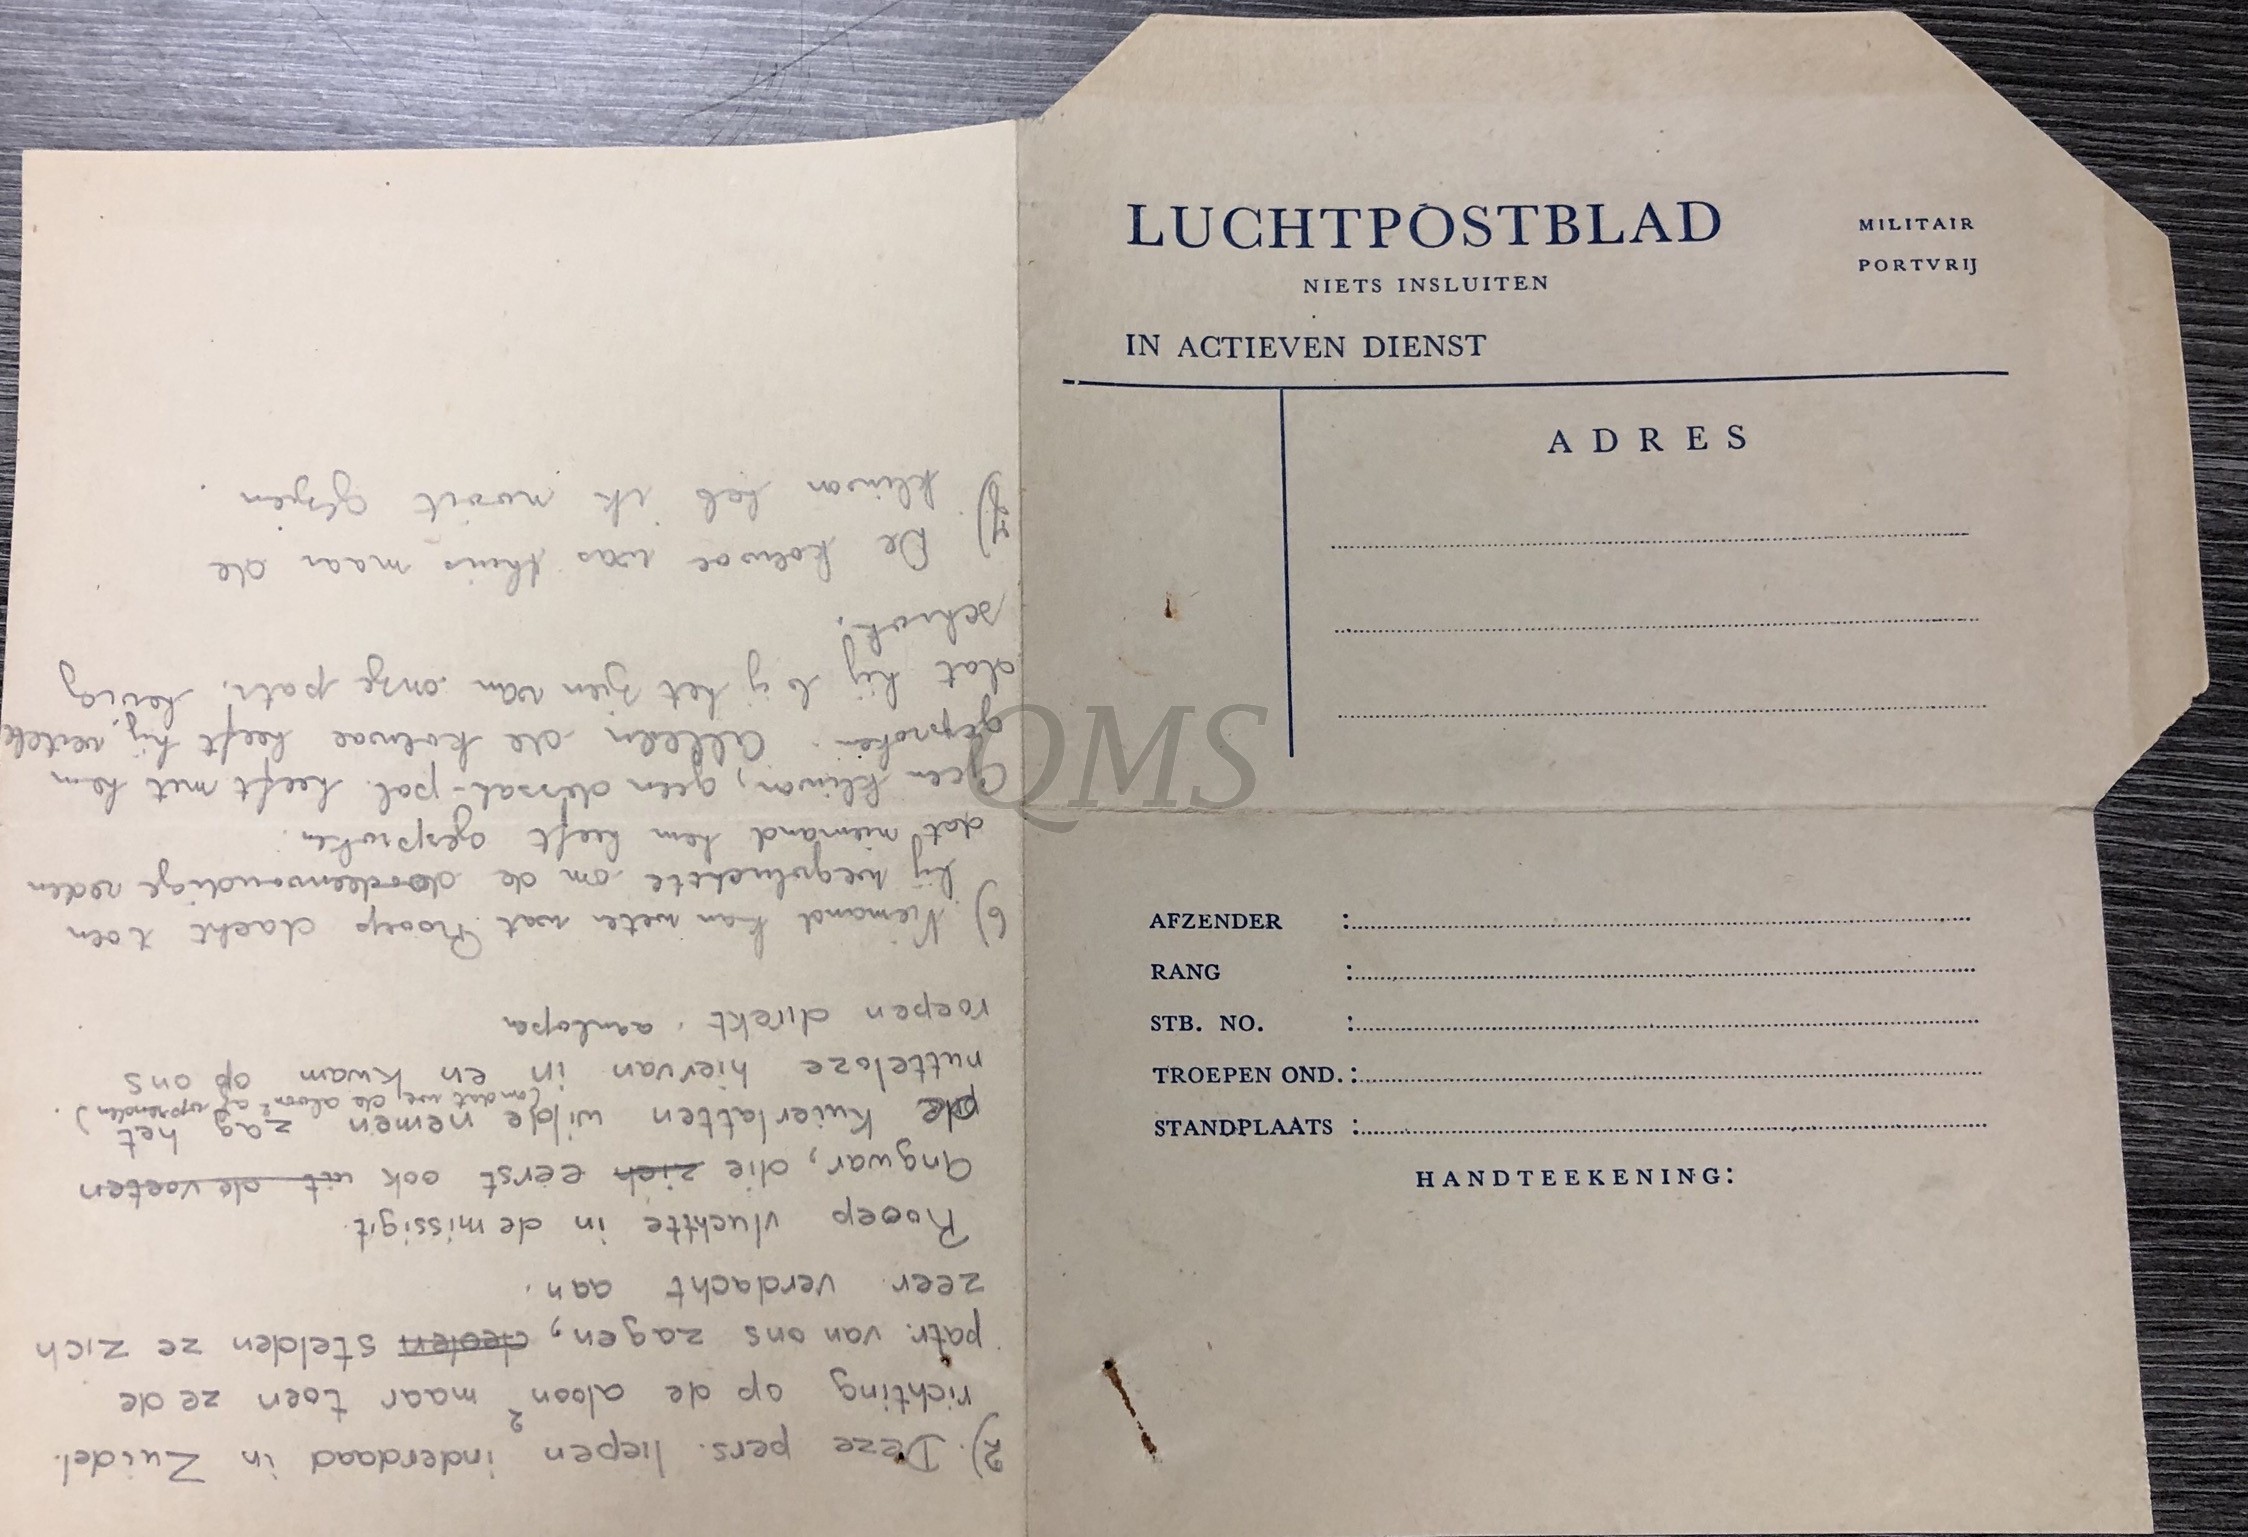 LUCHTPOSTBLAD
NIETS INSLUITEN
MILITAIR
PORTVRIJ
IN ACTIEVEN DIENST
ADRES
AFZENDER :
RANG :
STB. NO. :
TROEPEN OND. :
STANDPLAATS :
HANDTEEKENING:
2). Deze pers. liepen inderdaad in Zuidel.
richting op de aloon² maar toen ze de
patr. van ons zagen, stelden ze zich
zeer verdacht aan.
Rooep vluchtte in de missigit.
Angwar, die zich eerst ook uit de voeten
de Kuierlatten wilde nemen zag het
(omdat we de aloon² af renden).
nutteloze hiervan in en kwam op ons
roepen direkt aanlopen
6) Niemand kan weten wat Rooep dacht toen
hij wegvluchtte om de doodeenvoudige reden
dat niemand hem heeft gesproken.
Geen kliwon, geen dessah-pol. heeft met hem
gesproken. Alleen de koewoe heeft hij verteld
dat hij bij het zien van onze patr. hevig
schrok.
7) De koewoe was thuis maar de
kliwon heb ik nooit gezien.
QMS